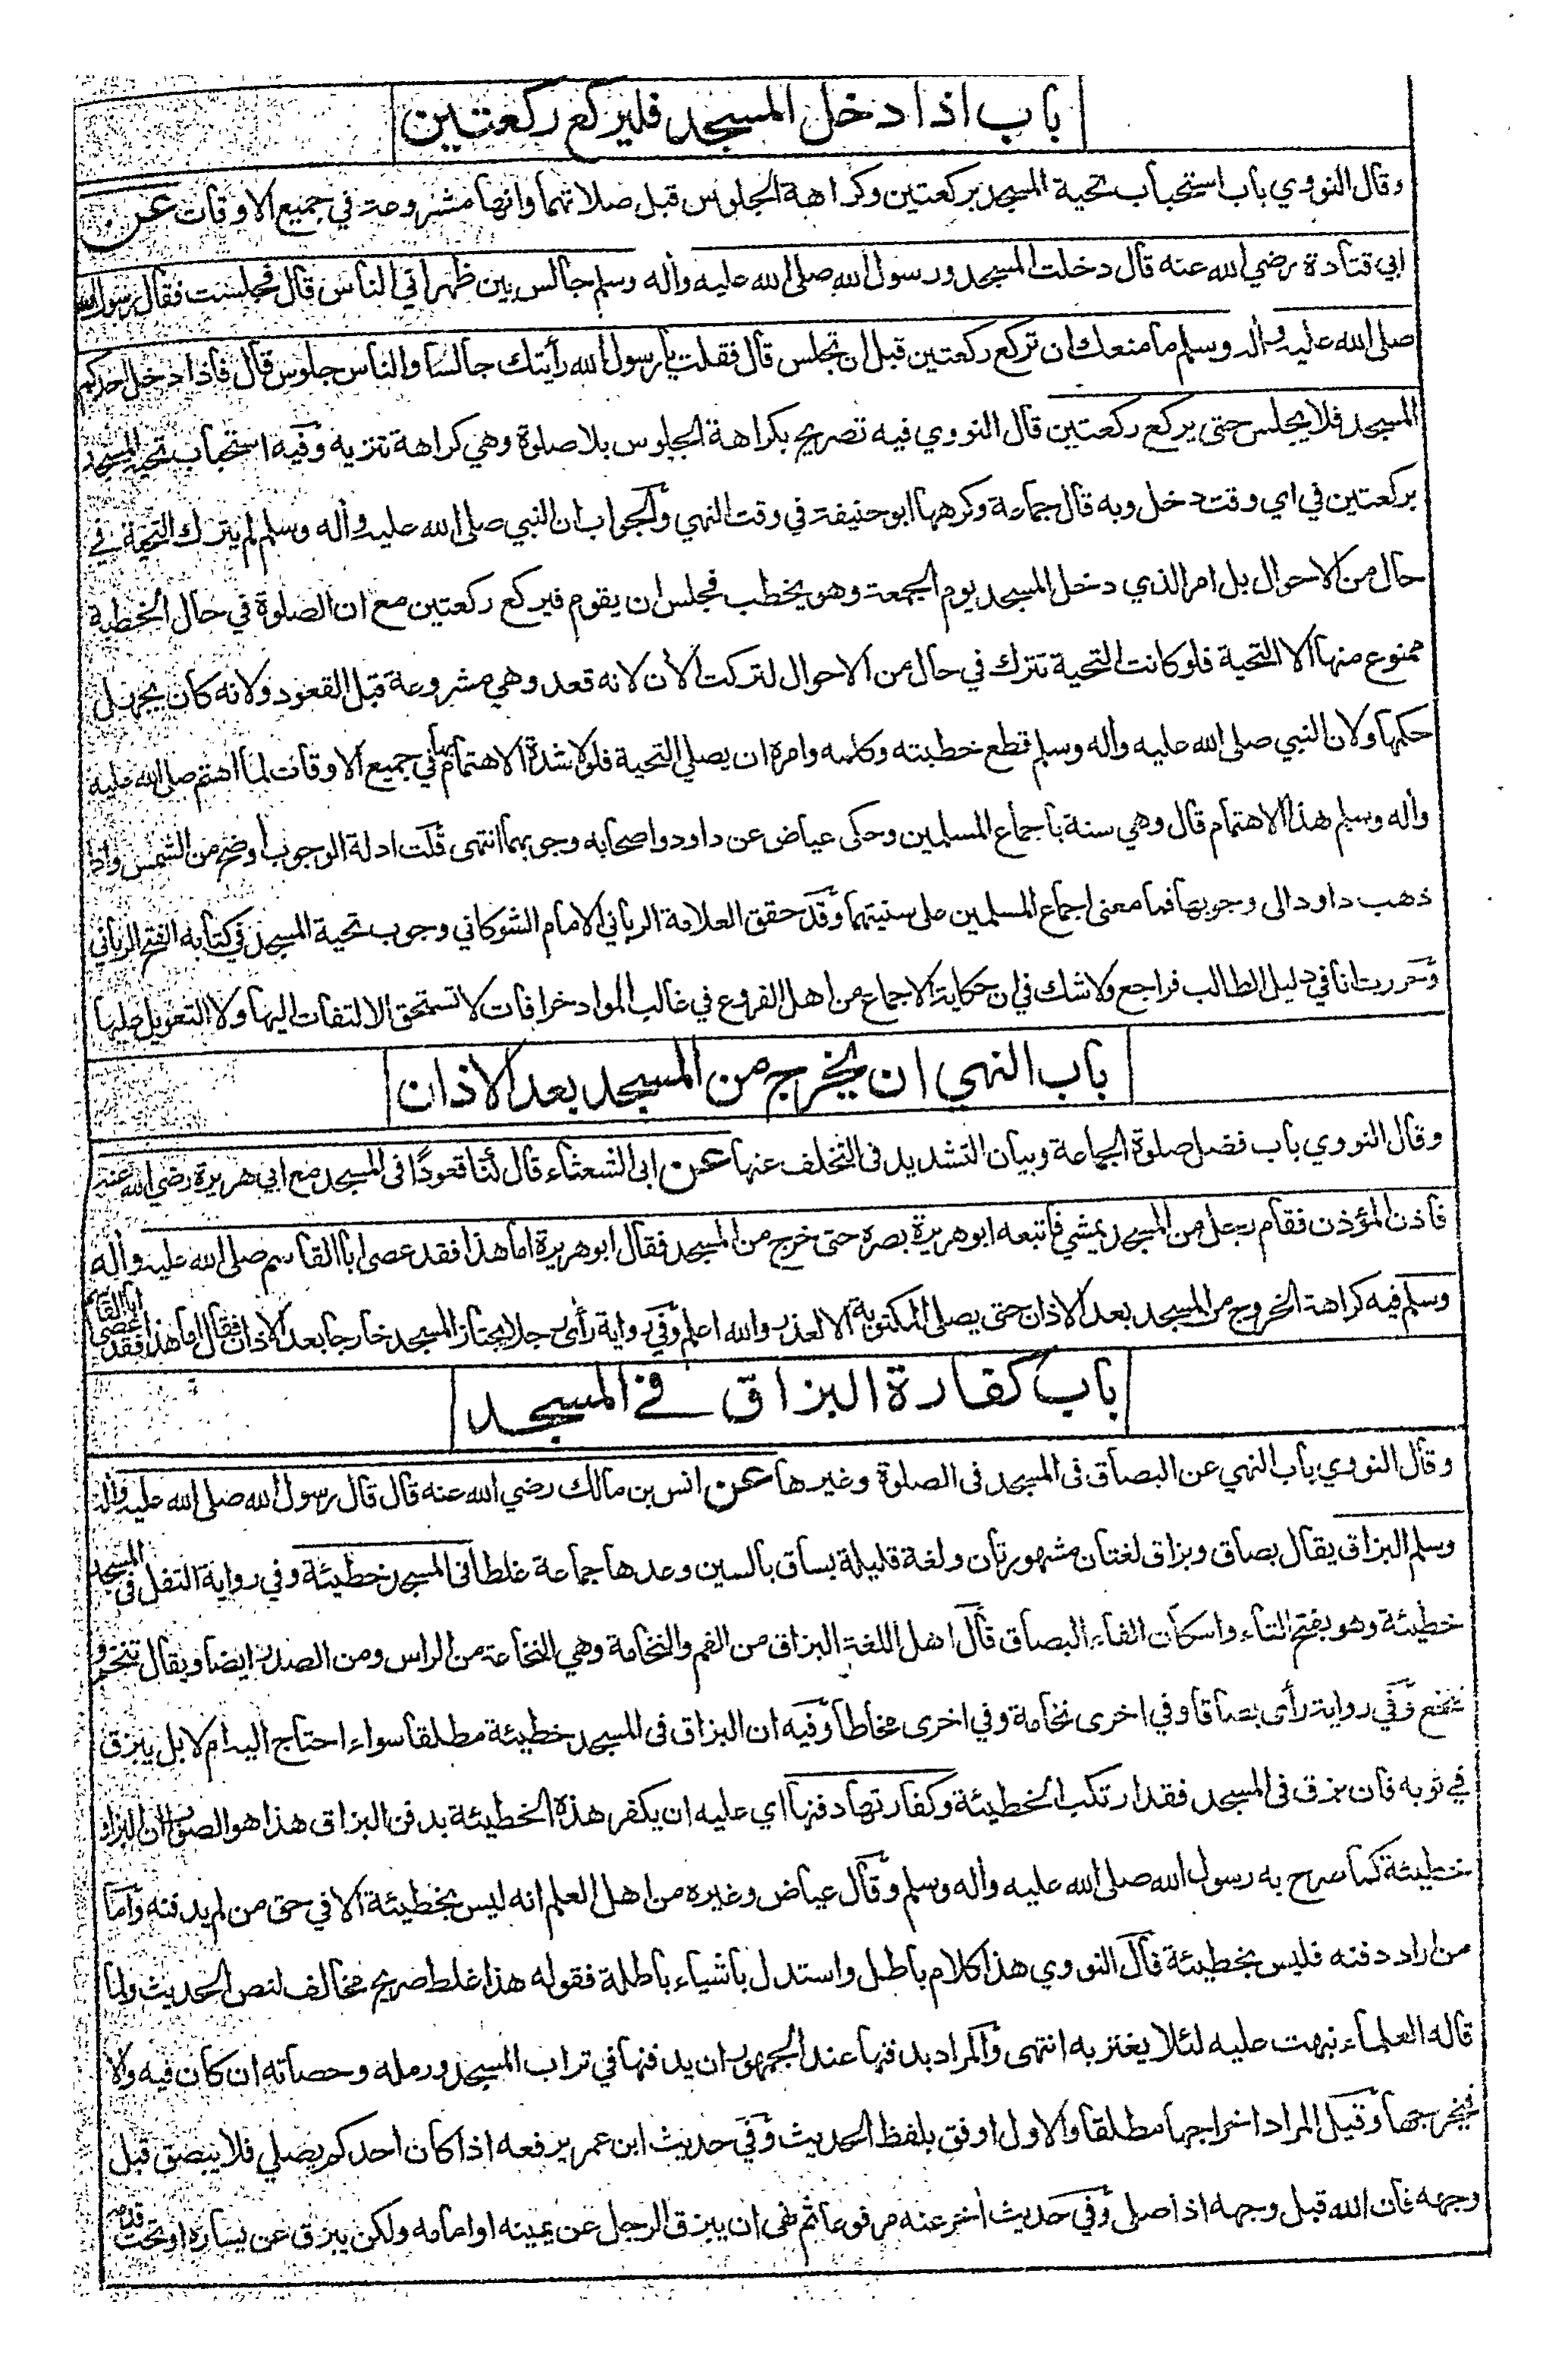 باب اذا دخل المسجد فليركع ركعتين
وقال النووي باب استحباب تحية المسجد بركعتين وكراهة الجلوس قبل صلاتهما وانها مشروعة في جميع الاوقات عن
ابي قتادة رضي الله عنه قال دخلت المسجد ورسول الله صلى الله عليه وأله وسلم جالس بين ظهراني الناس قال فجلست فقال رسول الله
صلى الله عليه وأله وسلم ما منعك ان تركع ركعتين قبل ان تجلس قال فقلت يا رسول الله رأيتك جالسا والناس جلوس قال فاذا دخل احدكم
المسجد فلا يجلس حتى يركع ركعتين قال النووي فيه تصريح بكراهة الجلوس بلا صلوة وهي كراهة تنزيه وفيه استحباب تحية المسجد
بركعتين في اي وقت دخل وبه قال جماعة وكرهها ابو حنيفة في وقت النهي والجواب ان النبي صلى الله عليه وأله وسلم لم يترك التحية في
حال من الاحوال بل امر الذي دخل المسجد يوم الجمعة وهو يخطب فجلس ان يقوم فيركع ركعتين مع ان الصلوة في حال الخطبة
ممنوع منها الا التحية فلو كانت التحية تترك في حال من الاحوال لتركت الأن لانه قعد وهي مشروعة قبل القعود ولانه كان يجهل
حكمها ولان النبي صلى الله عليه وأله وسلم قطع خطبته وكلمه وامره ان يصلي التحية فلولا شدة الاهتمام بها في جميع الاوقات لما اهتم صلى الله عليه
وأله وسلم هذا الاهتمام قال وهي سنة باجماع المسلمين وحكى عياض عن داود واصحابه وجوبهما انتهى قلت ادلة الوجوب أوضح من الشمس واذا
ذهب داود الى وجوبها فما معنى اجماع المسلمين على سنيتهما وقد حقق العلامة الرباني الامام الشوكاني وجوب تحية المسجد في كتابه الفتح الرباني
وحررت انا في دليل الطالب فراجع ولا شك في ان حكاية الاجماع من اهل الفروع في غالب المواد خرافات لا تستحق الالتفات اليها ولا التعويل عليها
باب النهي ان يخرج من المسجد بعد الاذان
وقال النووي باب فضل صلوة الجماعة وبيان التشديد في التخلف عنها عن ابى الشعثاء قال كنا قعودًا في المسجد مع ابي هريرة رضي الله عنه
فاذن المؤذن فقام رجل من المسجد يمشي فاتبعه ابو هريرة بصره حتى خرج من المسجد فقال ابو هريرة اما هذا فقد عصى ابا القاسم صلى الله عليه وأله
وسلم فيه كراهة الخروج من المسجد بعد الاذان حتى يصلي المكتوبة الا لعذر والله اعلم وفي رواية رأى رجلا يجتاز المسجد خارجا بعد الاذان فقال اما هذا فقد عصى ابا القاسم
باب كفارة البزاق في المسجد
وقال النووي باب النهي عن البصاق في المسجد في الصلوة وغيرها عن انس بن مالك رضي الله عنه قال قال رسول الله صلى الله عليه وأله
وسلم البزاق يقال بصاق وبزاق لغتان مشهورتان ولغة قليلة بساق بالسين وعدها جماعة غلطا في المسجد خطيئة وفي رواية التفل في المسجد
خطيئة وهو بفتح التاء واسكان الفاء البصاق قال اهل اللغة البزاق من الفم والنخامة وهي النخاعة من الراس ومن الصدر ايضا ويقال تنخم و
تنخع وفي رواية رأى بصاقا وفي اخرى نخامة وفي اخرى مخاطا وفيه ان البزاق في المسجد خطيئة مطلقا سواء احتاج اليه ام لا بل يبزق
في ثوبه فان بزق في المسجد فقد ارتكب الخطيئة وكفارتها دفنها اي عليه ان يكفر هذه الخطيئة بدفن البزاق هذا هو الصواب ان البزاق
خطيئة كما صرح به رسول الله صلى الله عليه وأله وسلم وقال عياض وغيره من اهل العلم انه ليس بخطيئة الا في حق من لم يدفنه واما
من اراد دفنه فليس بخطيئة قال النووي هذا كلام باطل واستدل باشياء باطلة فقوله هذا غلط صريح مخالف لنص الحديث ولما
قاله العلماء نبهت عليه لئلا يغتر به انتهى والمراد بدفنها عند الجمهور ان يدفنها في تراب المسجد ورمله وحصاته ان كان فيه والا
فيخرجها وقيل المراد اخراجها مطلقا والاول اوفق بلفظ الحديث وفي حديث ابن عمر يرفعه اذا كان احدكم يصلي فلا يبصق قبل
وجهه فان الله قبل وجهه اذا صلى وفي حديث أخر عنه مرفوعا ثم نهى ان يبزق الرجل عن يمينه او امامه ولكن يبزق عن يساره او تحت قدمه